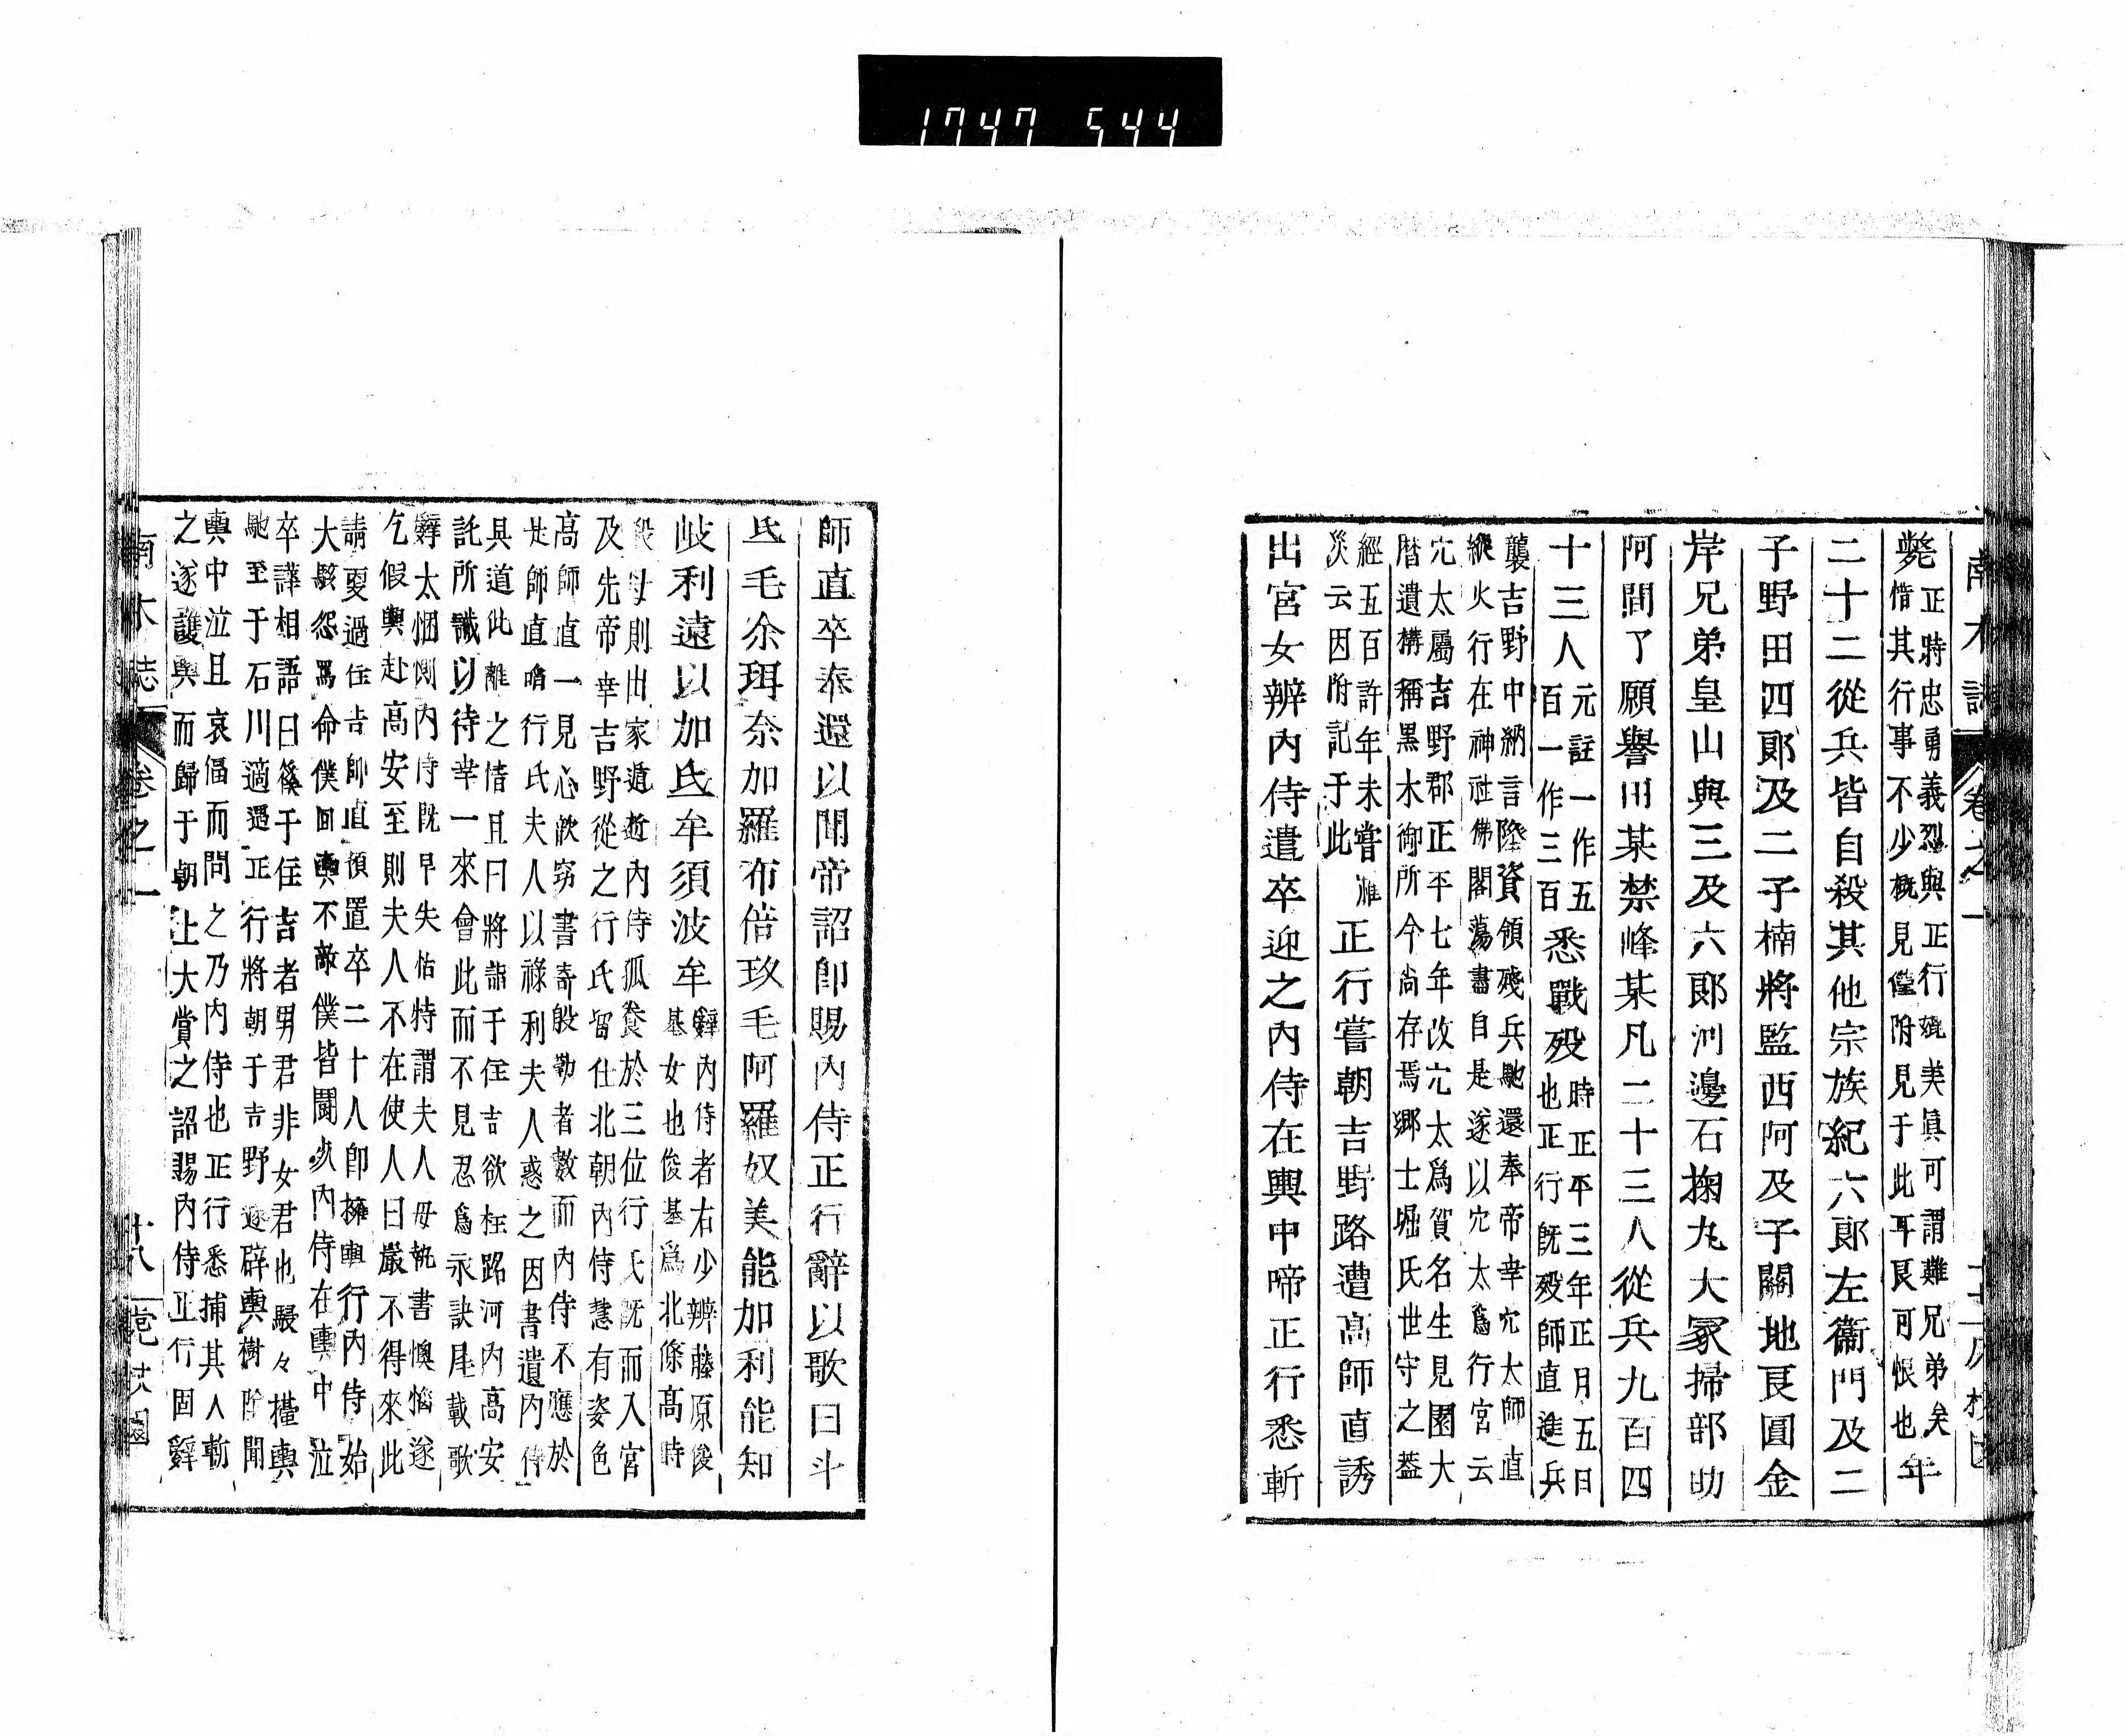 1747 544
南木誌 卷之一
斃正時忠勇義烈與正行媲美眞可謂難兄弟矣
惜其行事不少概見僅附見于此耳艮可恨也年
二十二從兵皆自殺其他宗族紀六郞左衞門及二
子野田四郞及二子楠將監西阿及子關地良圓金
岸兄弟皇山與三及六郞河邊石掬丸大冢掃部助
阿間了願譽田某禁峰某凡二十三人從兵九百四
十三人元註一作五
百一作三百悉戰歿時正平三年正月五日
也正行既歿師直進兵
襲吉野中納言隆資領殘兵馳還奉帝幸宂太師直
縱火行在神社佛閣蕩盡自是遂以宂太爲行宮云
宂太屬吉野郡正平七年改宂太爲賀名生見園大
曆遺構稱黑木御所今尚存焉鄕士堀氏世守之蓋
經五百許年未嘗罹
災云因附記于此正行嘗朝吉野路遭高師直誘
出宮女辨內侍遣卒迎之內侍在輿中啼正行悉斬
師直卒奉還以聞帝詔卽賜內侍正行辭以歌曰斗
氐毛余珥奈加羅布倍玖毛阿羅奴美能加利能知
岐利遠以加氐牟須波牟辨內侍者右少辨藤原俊
基女也俊基爲北條高時
殺母則出家遁逝內侍孤養於三位行氏既而入宮
及先帝幸吉野從之行氏留仕北朝內侍慧有姿色
高師直一見心歆竊書寄殷勤者數而內侍不應於
是師直啗行氏夫人以祿利夫人惑之因書遺內侍
具道此離之情且曰將詣于住吉欲枉路河內高安
託所識以待幸一來會此而不見忍爲永訣尾載歌
辭太悃惻內侍既早失怙特謂夫人母執書懊惱遂
乞假輿赴高安至則夫人不在使人曰嚴不得來此
請更過住吉師直預置卒二十人卽擁輿行內侍始
大駭怨罵命僕回輿不敵僕皆鬪死內侍在輿中泣
卒譁相語曰篌于住吉者男君非女君也嚴々擡輿
馳至于石川適遇正行將朝于吉野遂辟輿樹陰聞
輿中泣且哀偪而問之乃內侍也正行悉捕其人斬
之遂護輿而歸于朝上大賞之詔賜內侍正行固辭
南木誌 卷之一 十八